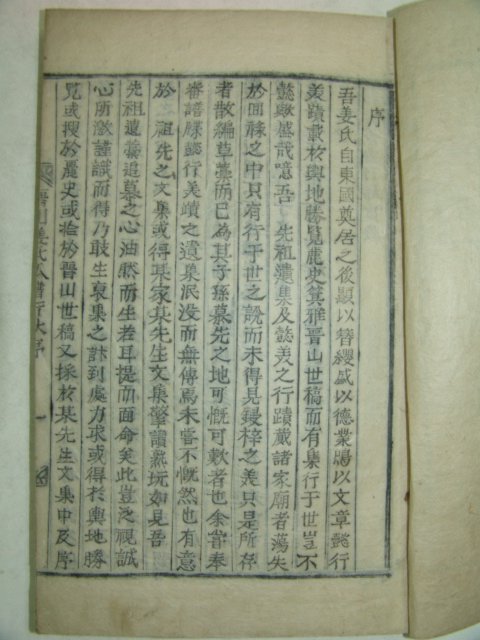 序
吾姜氏自東國奠居之後顯以簪纓盛以德業鳴以文章懿行
美蹟載於輿地勝覽麗史箕雅晋山世稿而有集行于世豈不
懿歟盛哉噫吾 先祖遺集及懿美之行蹟藏諸家廟者蕩失
於回祿之中只有行于世之說而未得見鋟梓之美只是所存
者散編草藁而已為其子孫慕先之地可慨可歎者也余嘗奉
審譜牒懿行美蹟之遺巢泯没而無傳焉未嘗不慨然也有意
於 祖先之文集或得某家某先生文集擎讀熟玩如見吾
先祖遺 追慕之心油然而生若耳提而面命矣此豈泛視誠
心所激謹識而得乃敢生裒集之計到處力求或得於輿地勝
覧或搜於麗史或捨於晋山世稿又採於某先生文集中及序
晋州姜氏 譜 序